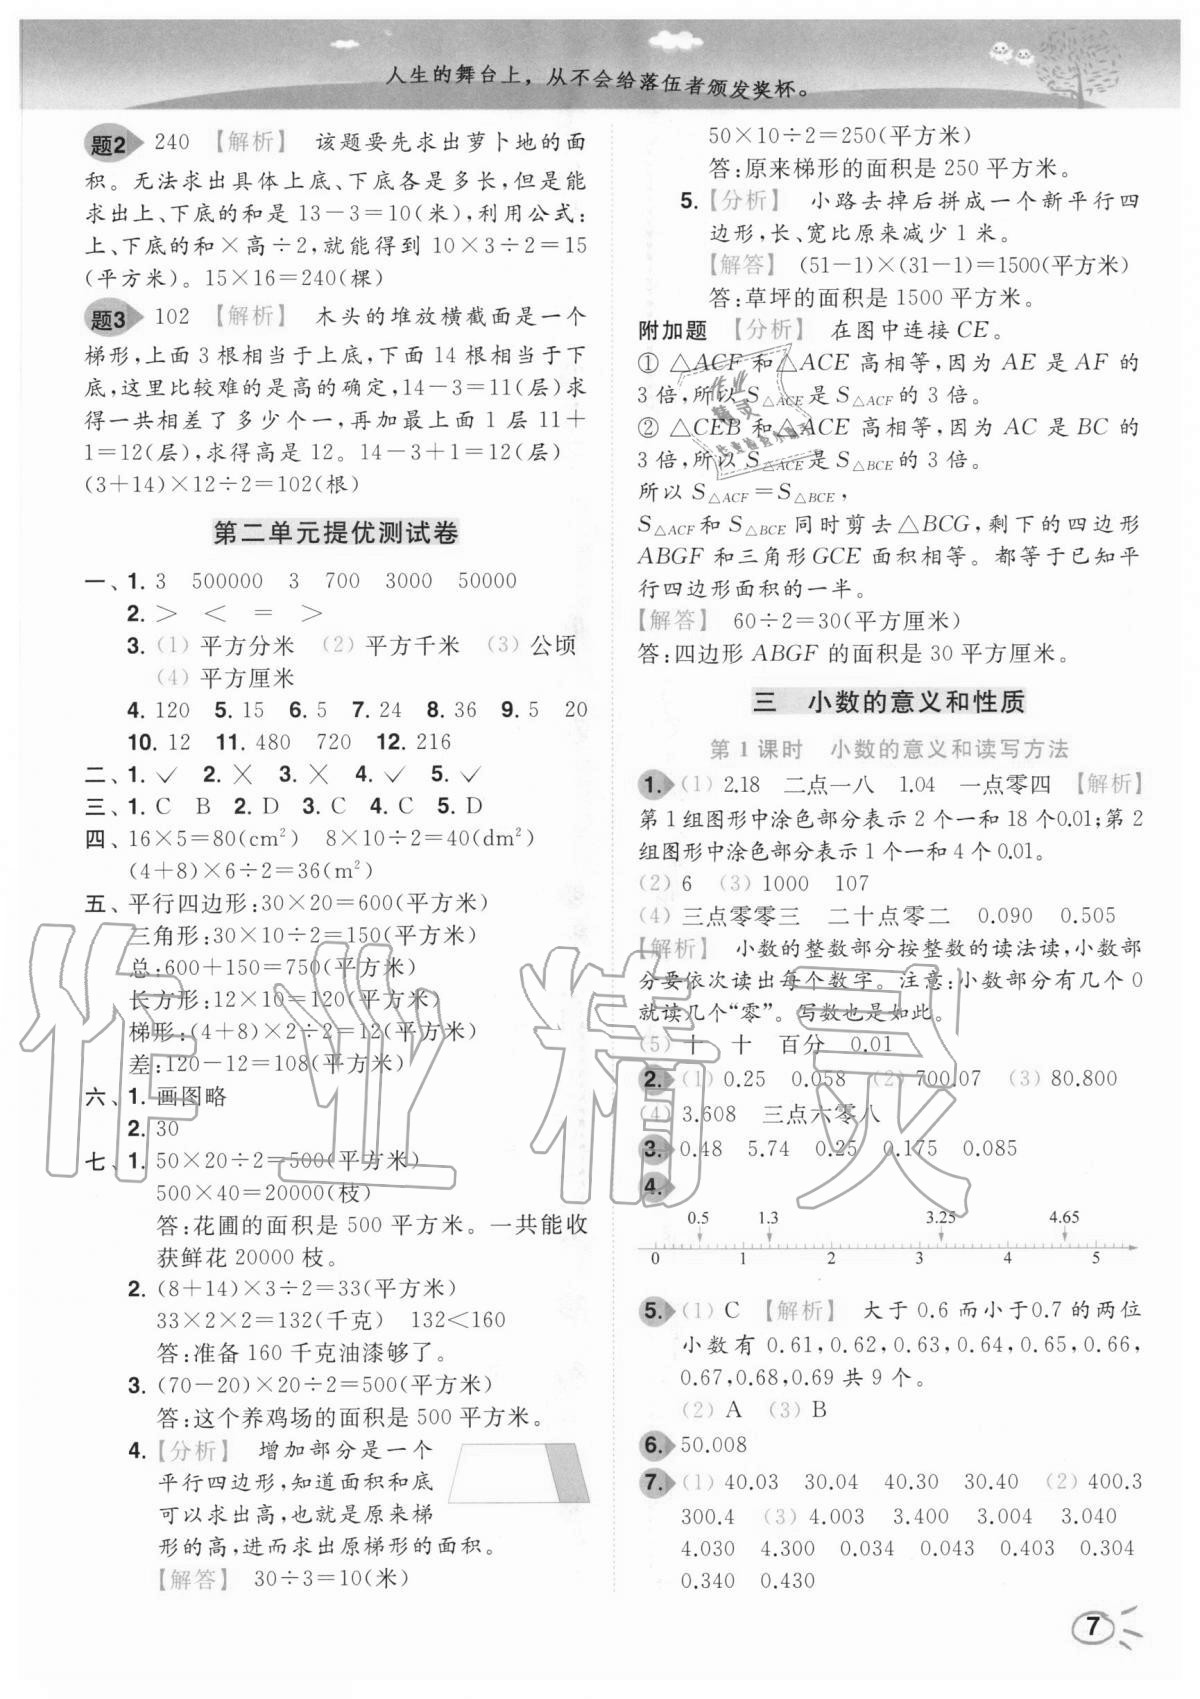 人生的舞台上，从不会给落伍者颁发奖杯。
题2 240 【解析】 该题要先求出萝卜地的面
积。无法求出具体上底、下底各是多长，但是能
求出上、下底的和是 13－3＝10(米)，利用公式：
上、下底的和×高÷2，就能得到 10×3÷2＝15
(平方米)。15×16＝240(棵)
题3 102 【解析】 木头的堆放横截面是一个
梯形，上面 3 根相当于上底，下面 14 根相当于下
底，这里比较难的是高的确定，14－3＝11(层)求
得一共相差了多少个一，再加最上面 1 层 11＋
1＝12(层)，求得高是 12。14－3＋1＝12(层)
(3＋14)×12÷2＝102(根)
第二单元提优测试卷
一、1. 3 500000 3 700 3000 50000
2. ＞ ＜ ＝ ＞
3. (1) 平方分米 (2) 平方千米 (3) 公顷
(4) 平方厘米
4. 120 5. 15 6. 5 7. 24 8. 36 9. 5 20
10. 12 11. 480 720 12. 216
二、1. ✓ 2. × 3. × 4. ✓ 5. ✓
三、1. C B 2. D 3. C 4. C 5. D
四、16×5＝80(cm²) 8×10÷2＝40(dm²)
(4＋8)×6÷2＝36(m²)
五、平行四边形：30×20＝600(平方米)
三角形：30×10÷2＝150(平方米)
总：600＋150＝750(平方米)
长方形：12×10＝120(平方米)
梯形：(4＋8)×2÷2＝12(平方米)
差：120－12＝108(平方米)
六、1. 画图略
2. 30
七、1. 50×20÷2＝500(平方米)
500×40＝20000(枝)
答：花圃的面积是 500 平方米。一共能收
获鲜花 20000 枝。
2. (8＋14)×3÷2＝33(平方米)
33×2×2＝132(千克) 132＜160
答：准备 160 千克油漆够了。
3. (70－20)×20÷2＝500(平方米)
答：这个养鸡场的面积是 500 平方米。
4. 【分析】 增加部分是一个
平行四边形，知道面积和底
可以求出高，也就是原来梯
形的高，进而求出原梯形的面积。
【解答】 30÷3＝10(米)
50×10÷2＝250(平方米)
答：原来梯形的面积是 250 平方米。
5. 【分析】 小路去掉后拼成一个新平行四
边形，长、宽比原来减少 1 米。
【解答】 (51－1)×(31－1)＝1500(平方米)
答：草坪的面积是 1500 平方米。
附加题 【分析】 在图中连接 CE。
① △ACF 和△ACE 高相等，因为 AE 是 AF 的
3 倍，所以 S△ACE是 S△ACF的 3 倍。
② △CEB 和△ACE 高相等，因为 AC 是 BC 的
3 倍，所以 S△ACE是 S△BCE的 3 倍。
所以 S△ACF＝S△BCE，
S△ACF和 S△BCE同时剪去△BCG，剩下的四边形
ABGF 和三角形GCE 面积相等。都等于已知平
行四边形面积的一半。
【解答】 60÷2＝30(平方厘米)
答：四边形 ABGF 的面积是 30 平方厘米。
三 小数的意义和性质
第 1 课时 小数的意义和读写方法
1. (1) 2.18 二点一八 1.04 一点零四 【解析】
第 1 组图形中涂色部分表示 2 个一和 18 个0.01；第 2
组图形中涂色部分表示 1 个一和 4 个 0.01。
(2) 6 (3) 1000 107
(4) 三点零零三 二十点零二 0.090 0.505
【解析】 小数的整数部分按整数的读法读，小数部
分要依次读出每个数字。注意：小数部分有几个 0
就读几个“零”。写数也是如此。
(5) 十 十 百分 0.01
2. (1) 0.25 0.058 (2) 700.07 (3) 80.800
(4) 3.608 三点六零八
3. 0.48 5.74 0.25 0.175 0.085
4.
0.5 1.3 3.25 4.65
0 1 2 3 4 5
5. (1) C 【解析】 大于 0.6 而小于0.7 的两位
小数有 0.61，0.62，0.63，0.64，0.65，0.66，
0.67，0.68，0.69 共 9 个。
(2) A (3) B
6. 50.008
7. (1) 40.03 30.04 40.30 30.40 (2) 400.3
300.4 (3) 4.003 3.400 3.004 3.040
4.030 4.300 0.034 0.043 0.403 0.304
0.340 0.430
7
作业精灵
作业
精灵